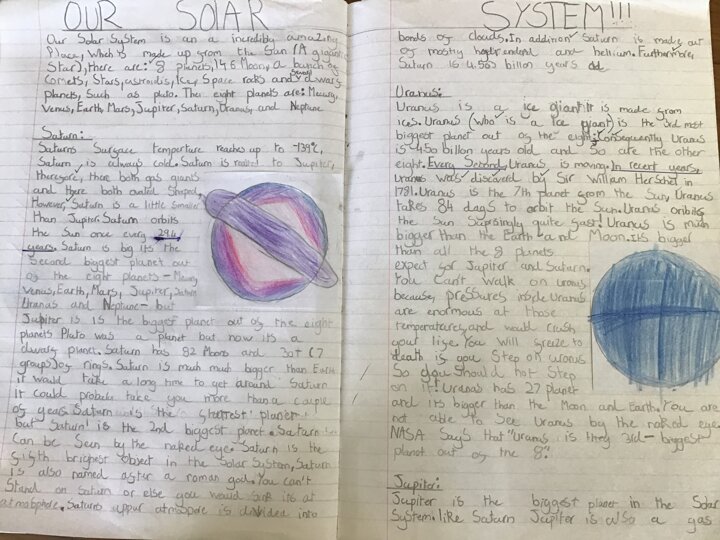 OUR SOLAR
Our Solar System is an a incredibly amazing
Place, Which is made up from the Sun (A gigantic
Star), there are: 8 planets, 146 Moons, a bunch of
Comets, Stars, astroids, Icy Space rocks and dwarf
planets, Such as pluto. Ther eight planets are: Mecury,
Venus, Earth, Mars, Jupiter, Saturn, Uranus, and Neptune
Saturn:
Saturns Surgace temperture reaches up to -139°C,
Saturn is always cold. Saturn is realted to Jupiter,
theregore, there both gas giants
and there both ovaled Shaped,
However, Saturn is a little Smaller
than Jupiter. Saturn orbits
the Sun once every 29.4
years. Saturn is big its the
Second biggest planet out
of the eight planets - Mecury
Venus, Earth, Mars, Jupiter, Saturn
Uranus and Neptune - but
Jupiter is is the biggest planet out of the eight
planets Pluto was a planet but now its a
dwarg planet. Saturn has 82 Moons and (7
groups) of rings. Saturn is much much bigger than Earth
it would take a long time to get around Saturn
It could probaly take you more than a couple
of years. Saturn isn't the biggest planet
but Saturn is the 2nd biggest planet. Saturn
Can be Seen by the naked eye. Saturn is the
Sixth brighest object in the Solar System, Saturn
is also named after a roman god. You can't
Stand on Saturn or else you would sink its at
atmosphere. Saturns uppur atmospere is divided into
SYSTEM!!!
bonds of clouds. In addition Saturn is made out
of mostly and hellium. Furthermore,
Saturn is 4.503 billon years old
Uranus:
Uranus is a ice giant It is made from
ices. Uranus (Who is a ice giant) is the 3rd most
biggest planet out of the eight. Consequently Uranus
is 4.50 billon years old and So are the other
eight. Every Second, Uranus is moving. In recent years,
Uranus was discivered by Sir William Herschel in
1781. Uranus is the 7th planet from the Sun, Uranus
takes 84 days to orbit the Sun. Uranus oribits
the Sun Suprisingly quite fast. Uranus is much
bigger than the Earth and Moon. Its bigger
than all the 8 planets
expect for Jupiter and Saturn.
You Can't Walk on Uranus
because, pressures inside Uranus
are enormous at those
temperatures, and would crush
your life. You Will freeze to
death is you Step on Uranus
So you should not Step
on it! Uranus has 27 planet
and its bigger than the Moon and Earth. You are
not able to See Uranus by the naked eye.
NASA Says that "Uranus is they 3rd - biggest
planet out of the 8."
Jupiter:
Jupiter is the biggest planet in the Solar
System. like Saturn Jupiter is also a gas